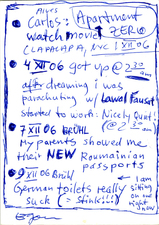 Ayurs
Carlos: Apartment
watch movie: ZERO
CLAPACAPA, NYC 1 XII 06
4 XII 06 got up @ 2:30 am
after dreaming i was
parachuting w/ Lawal Fausat
started to work. Nicely Quiet!
7 XII 06 BRÜHL (@ 2:30 am)
My parents showed me
their NEW Roumainian
passports
9 XII 06 Brühl
German toilets really
suck (= stink!!!)
I am
sitting
on one
right
now